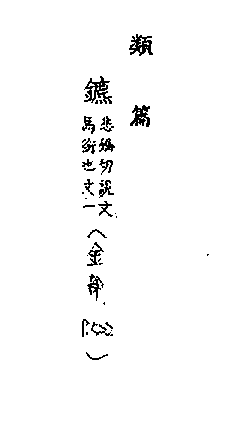 類篇
鑣悲嬌切說文
馬銜也文一(金部